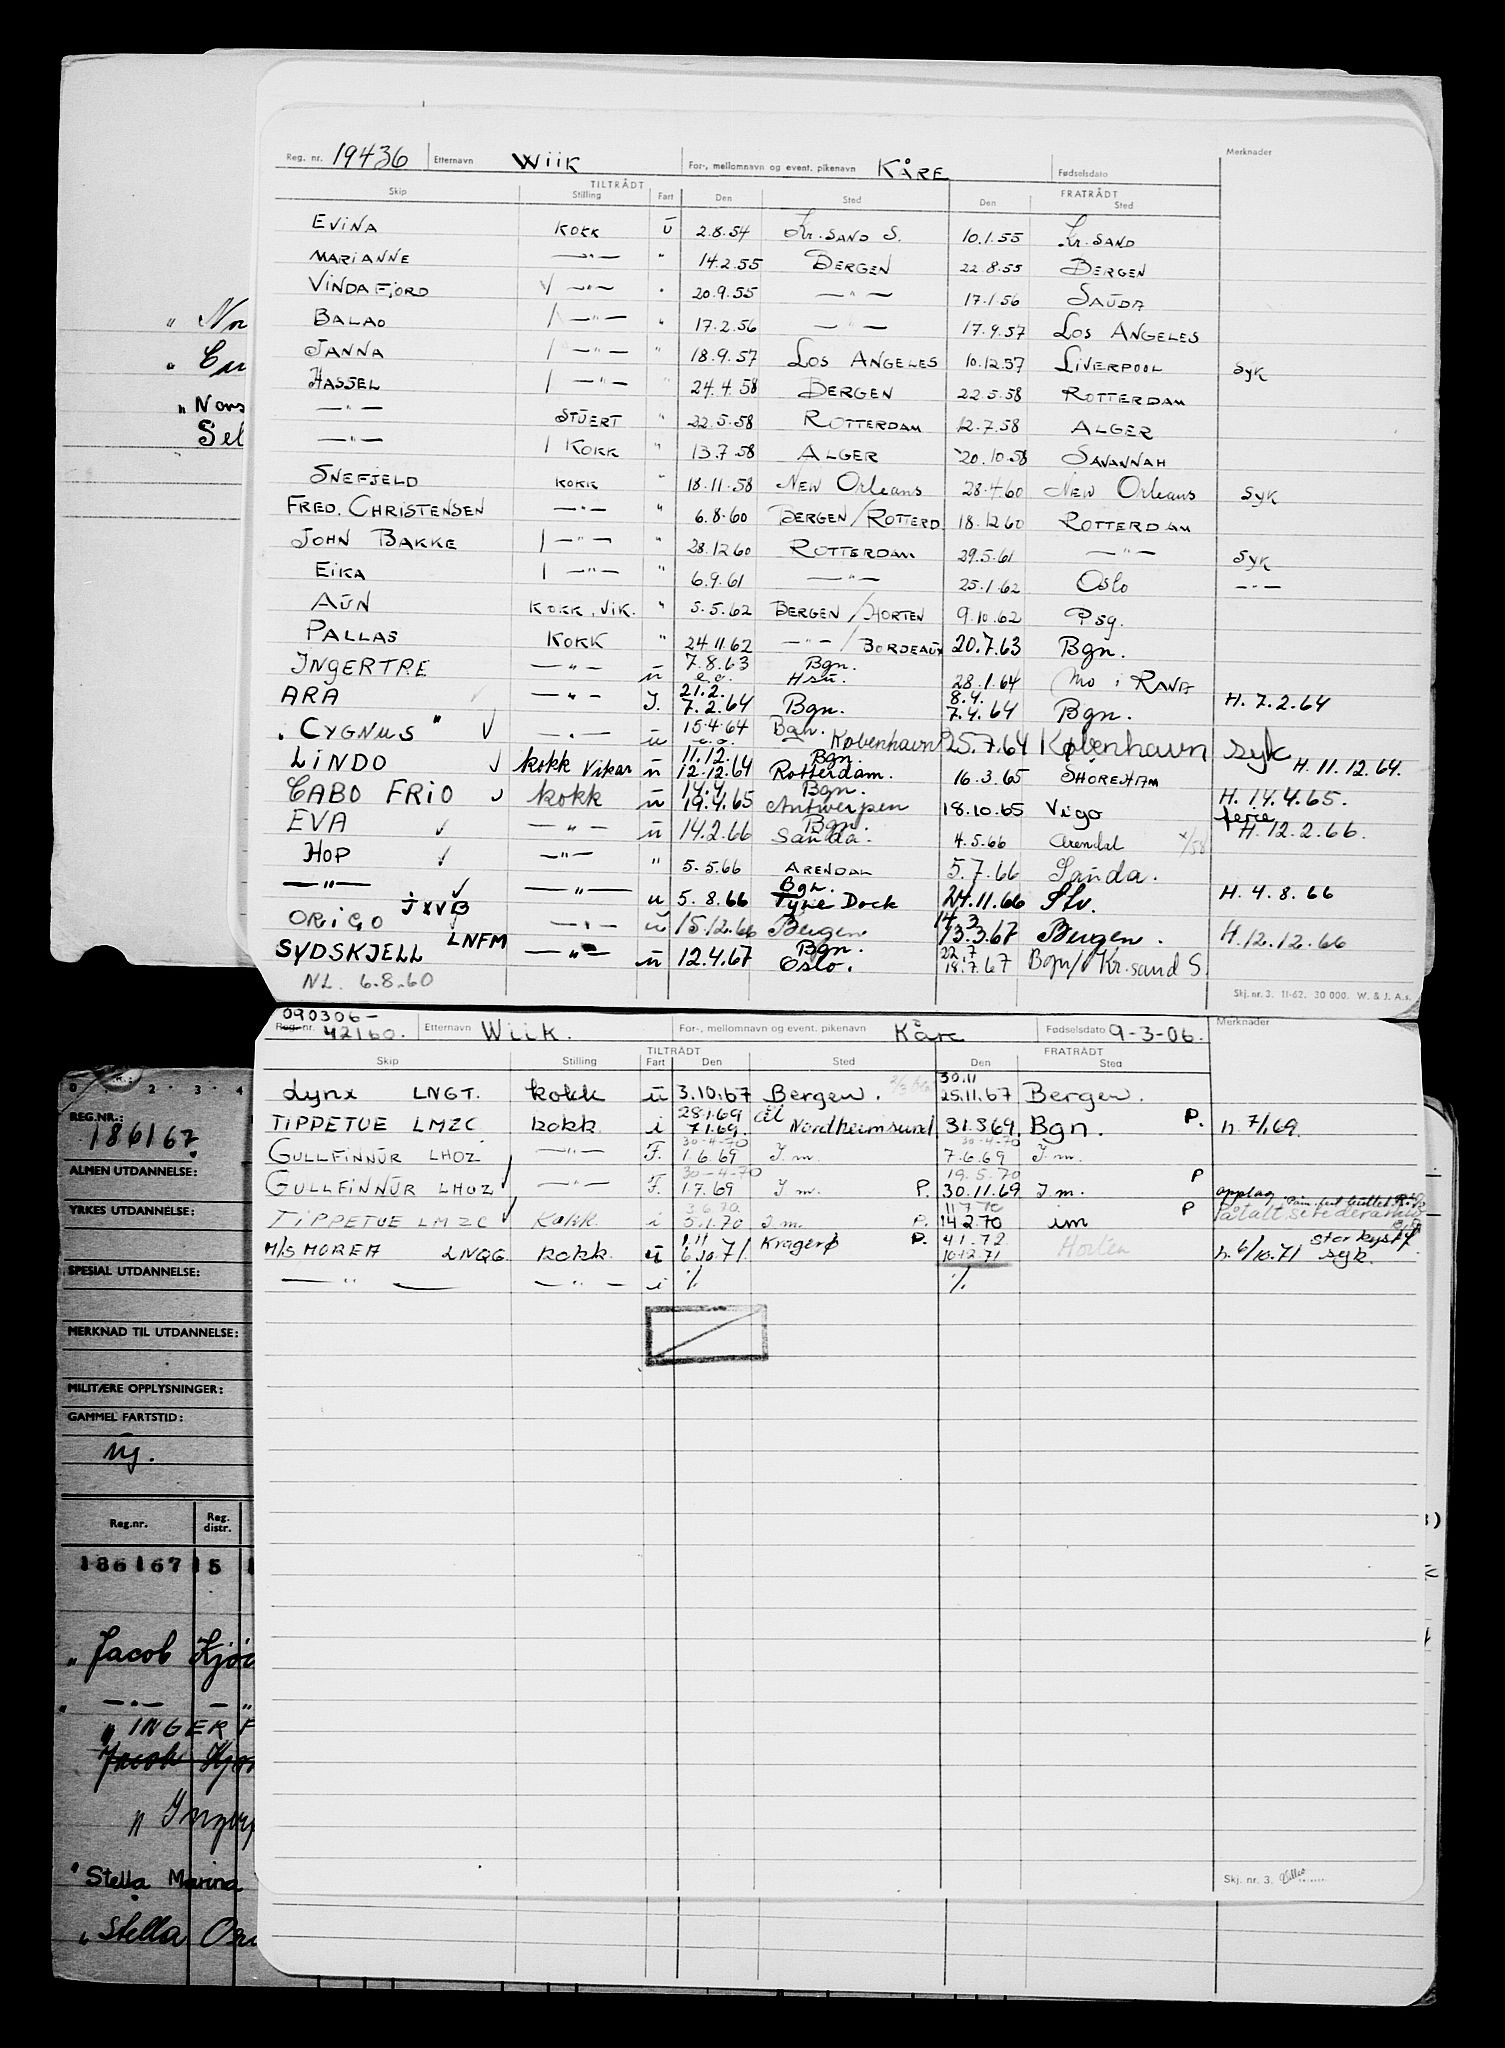 Reg. nr. 19436 Etternavn WIIK For-, mellomnavn og event. pikenavn KÅRE Fødselsdato Merknader
TILTRÅDT FRATRÅDT
Skip Stilling Fart Den Sted Den Sted
EVINA KOKK u 2.8.54 Kr. SAND S. 10.1.55 Kr. SAND
MARIANNE —"— " 14.2.55 BERGEN 22.8.55 BERGEN
VINDAFJORD —"— " 20.9.55 —"— 17.1.56 SAUDA
BALAO —"— " 17.2.56 —"— 17.9.57 LOS ANGELES
JANNA —"— " 18.9.57 LOS ANGELES 10.12.57 LIVERPOOL syk
HASSEL —"— " 24.4.58 BERGEN 22.5.58 ROTTERDAM
—"— STUERT " 22.5.58 ROTTERDAM 12.7.58 ALGER
—"— KOKK " 13.7.58 ALGER 20.10.58 SAVANNAH
SNEFJELD KOKK " 18.11.58 NEW Orleans 28.4.60 NEW Orleans syk
FRED. CHRISTENSEN —"— " 6.8.60 BERGEN/ROTTERD. 18.12.60 ROTTERDAM
JOHN BAKKE —"— " 28.12.60 ROTTERDAM 29.5.61 —"— syk
EIKA —"— " 6.9.61 —"— 25.1.62 Oslo —"—
AUN KOKK, VIK. " 5.5.62 BERGEN/HORTEN 9.10.62 Psg.
PALLAS KOKK " 24.11.62 —"—/BORDEAUX 20.7.63 Bgn.
INGERTRE —"— u 7.8.63 Bgn. 28.1.64 Mo i RANA
e.o. Hsu.
ARA —"— I. 21.2. 7.2.64 Bgn. 8.4. 7.4.64 Bgn. H. 7.2.64
"CYGNUS" —"— u 15.4.64 Bgn. København 25.7.64 København syk
LINDO kokk Vikar u 11.12. 12.12.64 Bgn. Rotterdam. 16.3.65 SHOREHAM H. 11.12.64.
CABO FRIO kokk u 14.4. 19.4.65 Bgn. Antwerpen 18.10.65 Vigo H. 14.4.65. ferie
EVA —"— u 14.2.66 Bgn. Sanda. 4.5.66 Arendal H. 12.2.66.
HOP —"— " 5.5.66 ARENDAL 5.7.66 Sauda.
—"— —"— u 5.8.66 Bgn. Tyne Dock 24.11.66 Stv. H. 4.8.66
ORIGO JXVB —"— u 15.12.66 Bergen 14.3 13.3.67 Bergen. H. 12.12.66
SYDSKJELL LNFM —"— u 12.4.67 Bgn. Oslo. 22.7 18.7.67 Bgn/Kr.sand S.
NL. 6.8.60
Skj. nr. 3. 11-62. 30 000. W. & J. A.s.
090306-
Reg. nr. 42160. Etternavn Wiik. For-, mellomnavn og event. pikenavn Kåre Fødselsdato 9-3-06. Merknader
TILTRÅDT FRATRÅDT
Skip Stilling Fart Den Sted Den Sted
Lynx LNGT. kokk u 3.10.67 Bergen. 30.11 25.11.67 Bergen.
TIPPETUE LMZC kokk i 28.1.69 7.1.69. Nordheimsund 31.3.69 Bgn. P. h. 7/1.69.
GULLFINNUR LHOZ —"— F. 30-4-70 1.6.69 I m. 30-4-70 7.6.69 I m.
GULLFINNUR LHOZ —"— F. 30-4-70 1.7.69 I m. P. 19.5.70 30.11.69 I m. P opplag
TIPPETUE LMZC kokk. i 3.6.70. 5.1.70 I m. P. 14.2.70 im P
M/S MOREA LNQG. kokk. u 1.11 6.10.71. Kragerø P. 4.1.72 10.12.71 Horten h. 6/10.71 syk. stor kyst
—"— —"— i % %
Skj. nr. 3.
" Nors
Sel
0 2 3 4
REG.NR.:
186167
ALMEN UTDANNELSE:
YRKES UTDANNELSE:
SPESIAL UTDANNELSE:
MERKNAD TIL UTDANNELSE:
MILITÆRE OPPLYSNINGER:
GAMMEL FARTSTID:
ug.
Reg.nr. Reg. distr.
186167 15
" Jacob Kjø
—"— —"
" INGER F
Jacob Kjø
" Inger
" Stella Marina
" Stella